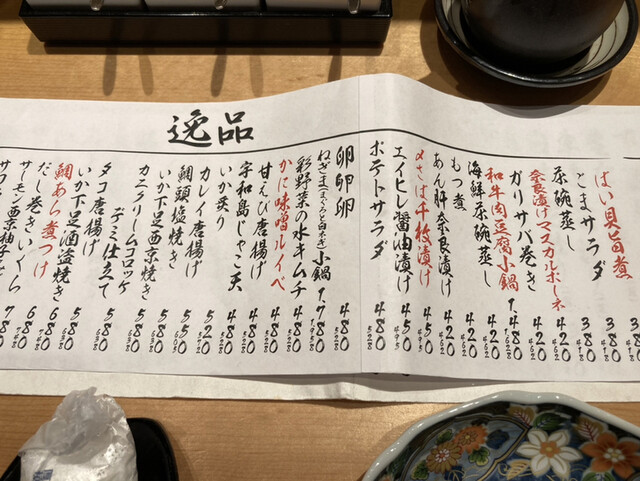 逸品
ばい貝旨煮 380 418
ごまサラダ 380 418
茶碗蒸し 380 418
奈良漬けマスカルポーネ 420 462
ガリサバ巻き 420 462
和牛肉豆腐小鍋 1,480 1,628
海鮮茶碗蒸し 420 462
もつ煮 420 462
あん肝奈良漬け 420 462
〆さば千枚漬け 450 495
エイヒレ醤油漬け 450 495
ポテトサラダ 480 528
卵卵卵 480 528
ねぎま(まぐろと白ネギ)小鍋 1,780 1,958
彩野菜の水キムチ 480 528
かに味噌ルイベ 480 528
甘えび唐揚げ 480 528
宇和島じゃこ天 480 528
いか炙り 480 528
カレイ唐揚げ 520
鯛頭塩焼き 550 605
いか下足西京焼き 580 638
カニクリームコロッケ
デミ仕立て 580 638
タコ唐揚げ 580 638
いか下足酒盗焼き 580 638
鯛あら煮つけ 680 748
だし巻きいくら 680 748
サーモン西京柚子 780